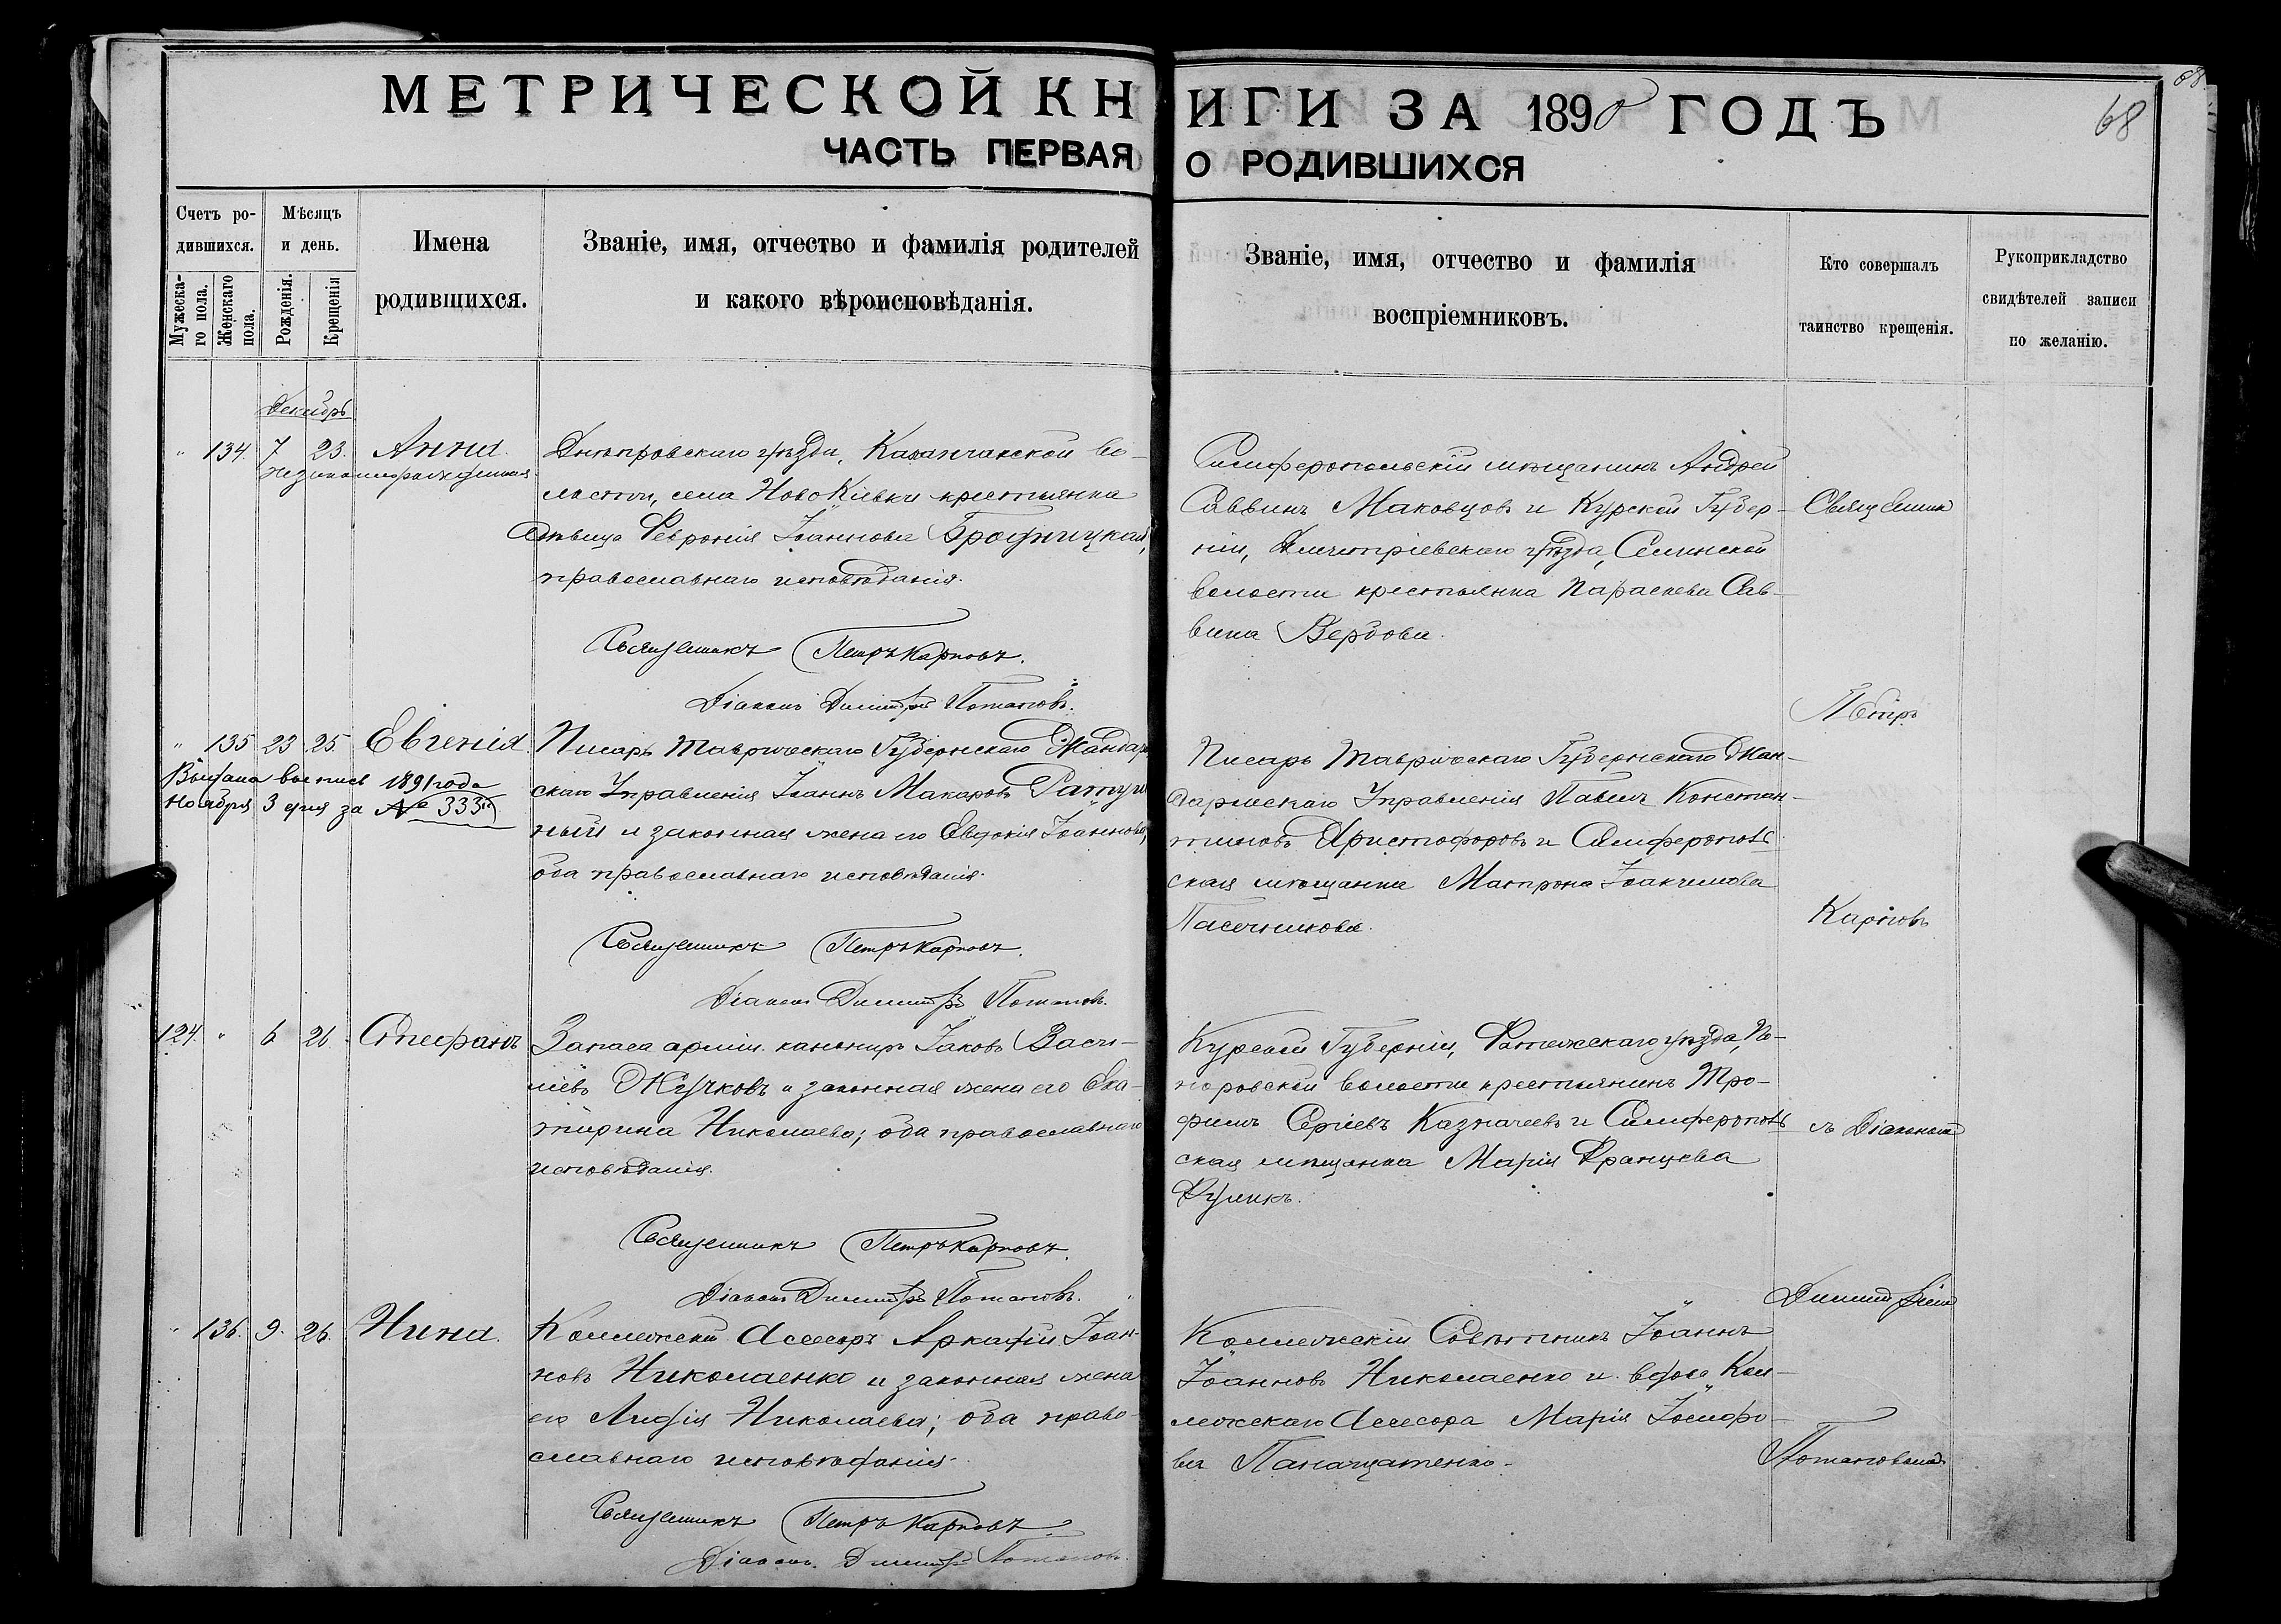 68
МЕТРИЧЕСКОЙ КНИГИ ЗА 1890 ГОДЪ
68
ЧАСТЬ ПЕРВАЯ О РОДИВШИХСЯ
Счетъ ро-
дившихся.
Мужеска-
го пола.
Женскаго
пола.
Мѣсяцъ
и день.
Рожденія.
Крещенія
Имена
родившихся.
Званіе, имя, отчество и фамилія родителей
и какого вѣроисповѣданія.
Званіе, имя, отчество и фамилія
воспріемниковъ.
Кто совершалъ
таинство крещенія.
Рукоприкладство
свидѣтелей записи
по желанію.
Декабрь
" 134. 7 23. Анна
незаконнорожденная
Днѣпровскаго уѣзда, Каланчакской во-
лости, села НовоКіевки крестьянка
дѣвица Февронія Іоаннова
православнаго исповѣданія.
Священникъ Петръ Карповъ.
Діаконъ Димитрій Потаповъ.
Симферопольскій мѣщанинъ Андрей
Саввинъ Маковцовъ и Курской Губер-
ніи, Дмитріевскаго уѣзда, Селинской
волости крестьянка Параскева Сав-
вина Вербова.
" 135 23 25 Евгенія
Выдана выпись 1891 года
Ноября 3 дня за № 333
Писарь Таврическаго Губернскаго Жандарм
скаго Управленія Іоаннъ Макаровъ
ный и законная жена его Евдокія Іоаннова,
оба православнаго исповѣданія.
Священникъ Петръ Карповъ.
Діаконъ Димитрій Потаповъ.
Писарь Таврическаго Губернскаго Жан-
дармскаго Управленія Павелъ Констан-
тиновъ Христофоровъ и Симферополь
ская мѣщанка Матрона Іоакимова
Пасечникова.
124. " 6 26 Стефанъ
Запаса арміи канониръ Іаковъ Васи-
ліевъ Жучковъ и законная жена его Ека-
терина Николаева; оба православнаго
исповѣданія.
Священникъ Петръ Карповъ.
Діаконъ Димитрій Потаповъ.
Курской Губерніи, Фатежскаго уѣзда, По-
норовской волости крестьянинъ Тро-
фимъ Сергіевъ Казначеевъ и Симферополь
ская мѣщанка Марія Францева
" 136. 9. 26. Нина.
Коллежскій Асесоръ Аркадій Іоан-
новъ Николаенко и законная жена
его Лидія Николаева; оба право-
славнаго исповѣданія.
Священникъ Петръ Карповъ.
Діаконъ Димитрій Потаповъ.
Коллежскій Совѣтникъ Іоаннъ
Іоанновъ Николаенко и вдова Кол-
лежскаго Асесора Марія Іосифо-
ва
Священник
Петръ
Карповъ
съ Діакономъ
Димитріемъ
Потаповымъ